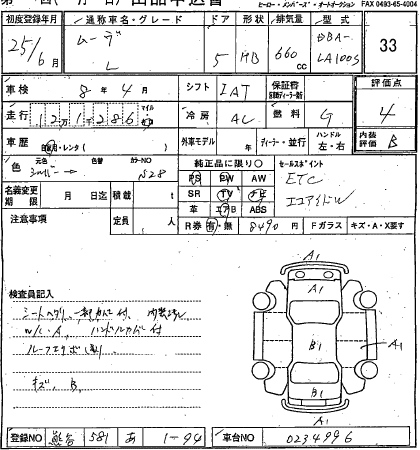 出品申込書
ヒーロー・メンバーズ・オートオークション FAX 0493-65-4004
初度登録年月 通称車名・グレード ドア 形状 排気量 型式
25/6月 ムーヴ L 5 HB 660cc DBA-LA100S 33
車検 8年4月 シフト IAT 保証書 評価点
走行 12万1286 マイル km 冷房 AC 燃料 G 4
車歴 自家用・レンタ 外車モデル 年 ディーラー・並行 ハンドル 左・右 内装評価 B
色 元色 シルバー 色替 カラーNO S28 純正品に限り○ セールスポイント
名義変更期限 月 日迄 積載 t PS PW AW ETC
SR TV ナビ エコアイドル
定員 人 革 エアB ABS
注意事項 R券 有・無 8490円 Fガラス キズ・A・X要す
A1
A1
検査員記入
シートヘタリ
W/C・A ハンドルカバー付
B1 A1
キズ、B
B1
A1
登録NO 熊谷 581 あ 1-94 車台NO 0234996